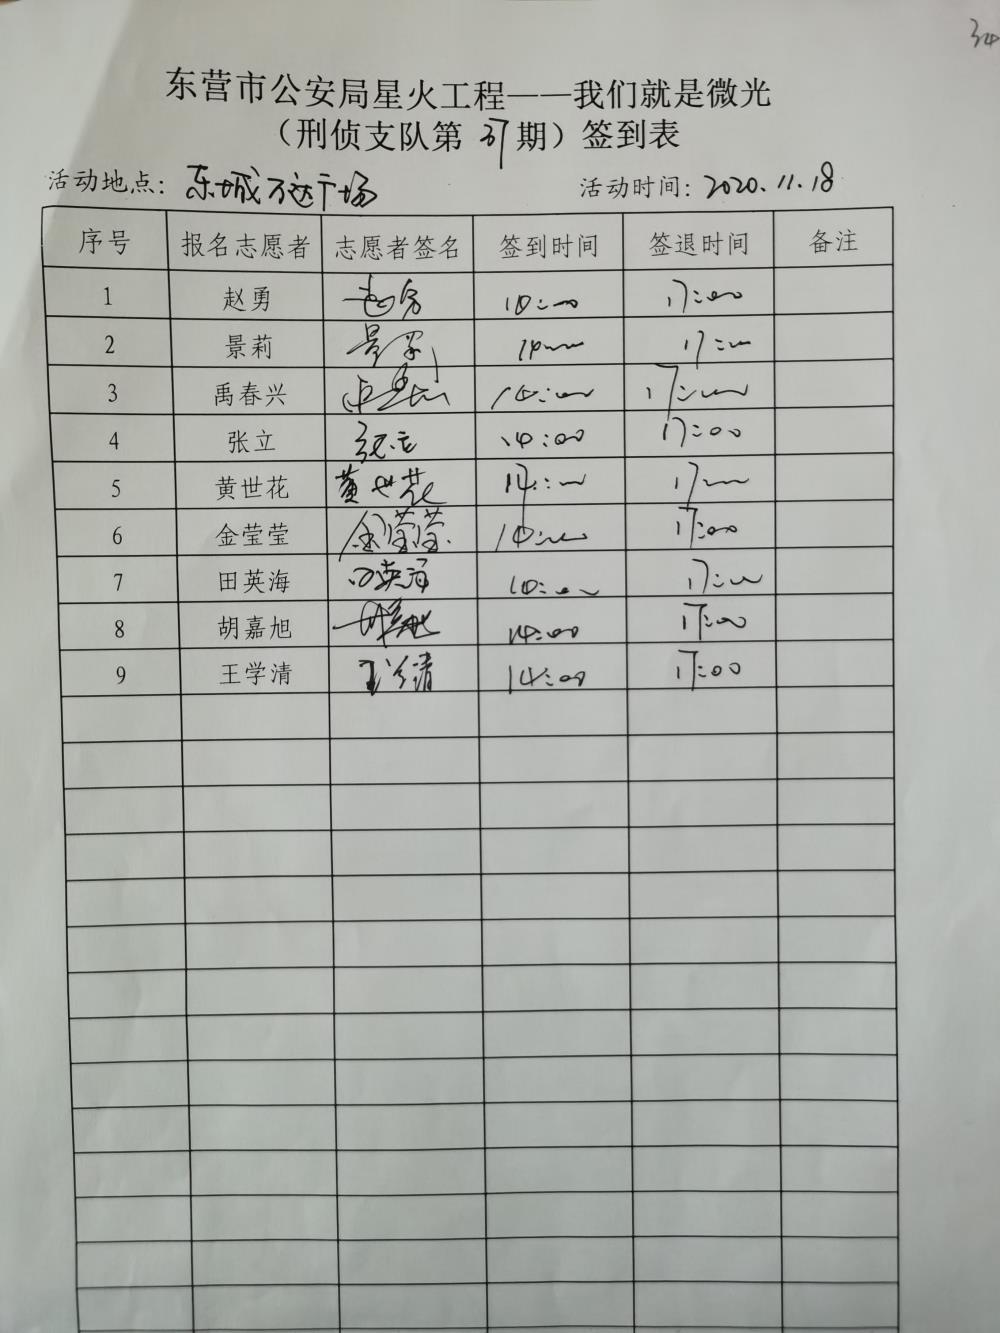 34
东营市公安局星火工程——我们就是微光
（刑侦支队第37期）签到表
活动地点：东城万达广场 活动时间：2020.11.18
序号 报名志愿者 志愿者签名 签到时间 签退时间 备注
1 赵勇 赵勇 14:00 17:00
2 景莉 景莉 14:00 17:00
3 禹春兴 14:00 17:00
4 张立 张立 14:00 17:00
5 黄世花 黄世花 14:00 17:00
6 金莹莹 金莹莹 14:00 17:00
7 田英海 田英海 14:00 17:00
8 胡嘉旭 胡嘉旭 14:00 17:00
9 王学清 王学清 14:00 17:00